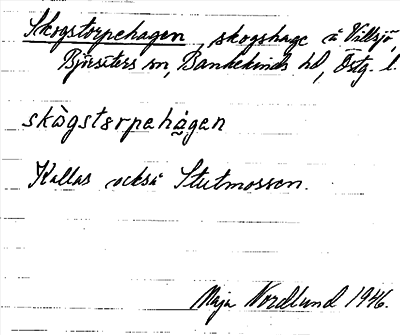 Skogstorpehagen, skogshage å Villsjö,
Björsäters sn, Bankekinds hd, Östg. l.
skògstorpehàgen
Kallas också Stutmossen.
Maja Nordlund 1946.